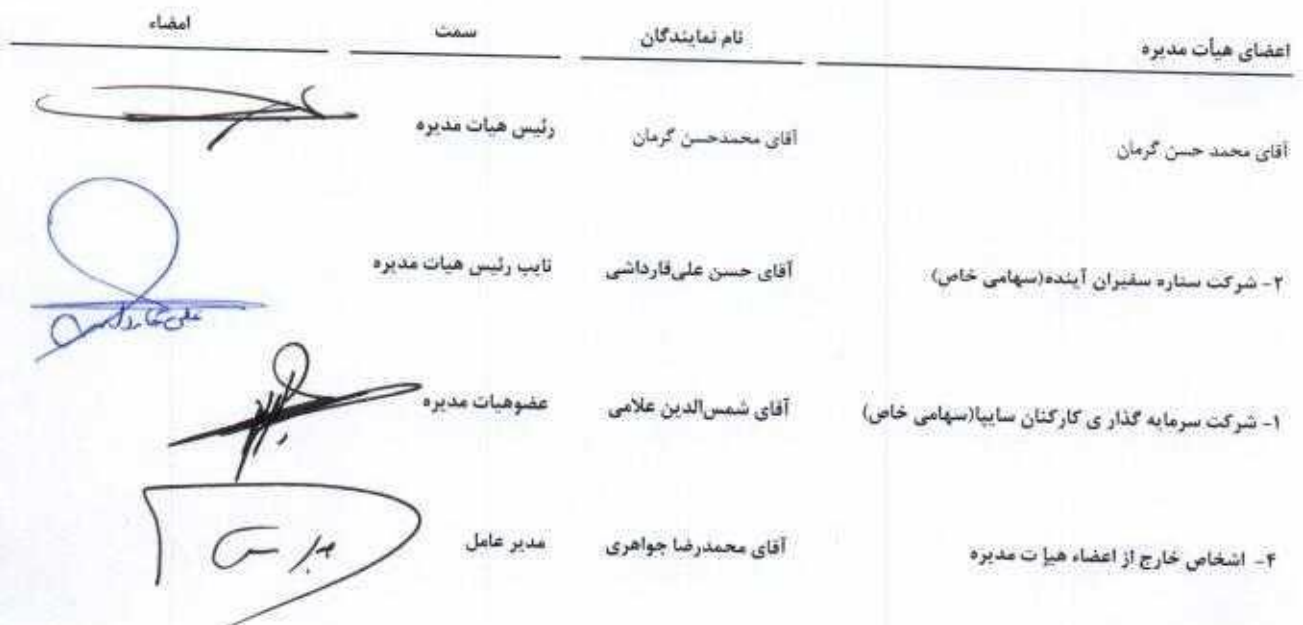 اعضای هیأت مدیره نام نمایندگان سمت امضاء
آقای محمد حسن گرمان آقای محمدحسن گرمان رئیس هیات مدیره
۲- شرکت ستاره سفیران آینده(سهامی خاص) آقای حسن علی‌قارداشی نایب رئیس هیات مدیره
۱- شرکت سرمایه گذار ی کارکنان سایپا(سهامی خاص) آقای شمس‌الدین علامی عضوهیات مدیره
۴- اشخاص خارج از اعضاء هیأ ت مدیره آقای محمدرضا جواهری مدیر عامل